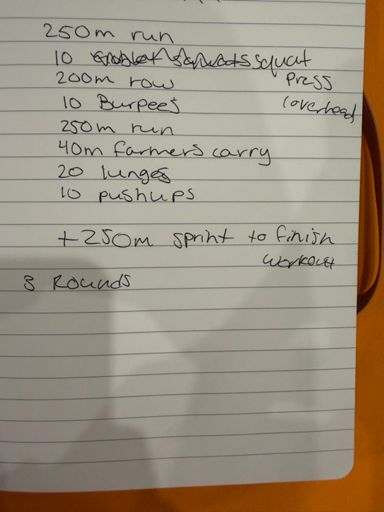 250m run
10 goblet squats squat press (overhead
200m row
10 Burpees
250m run
40m farmers carry
20 lunges
10 pushups
+ 250m sprint to finish workout
3 Rounds